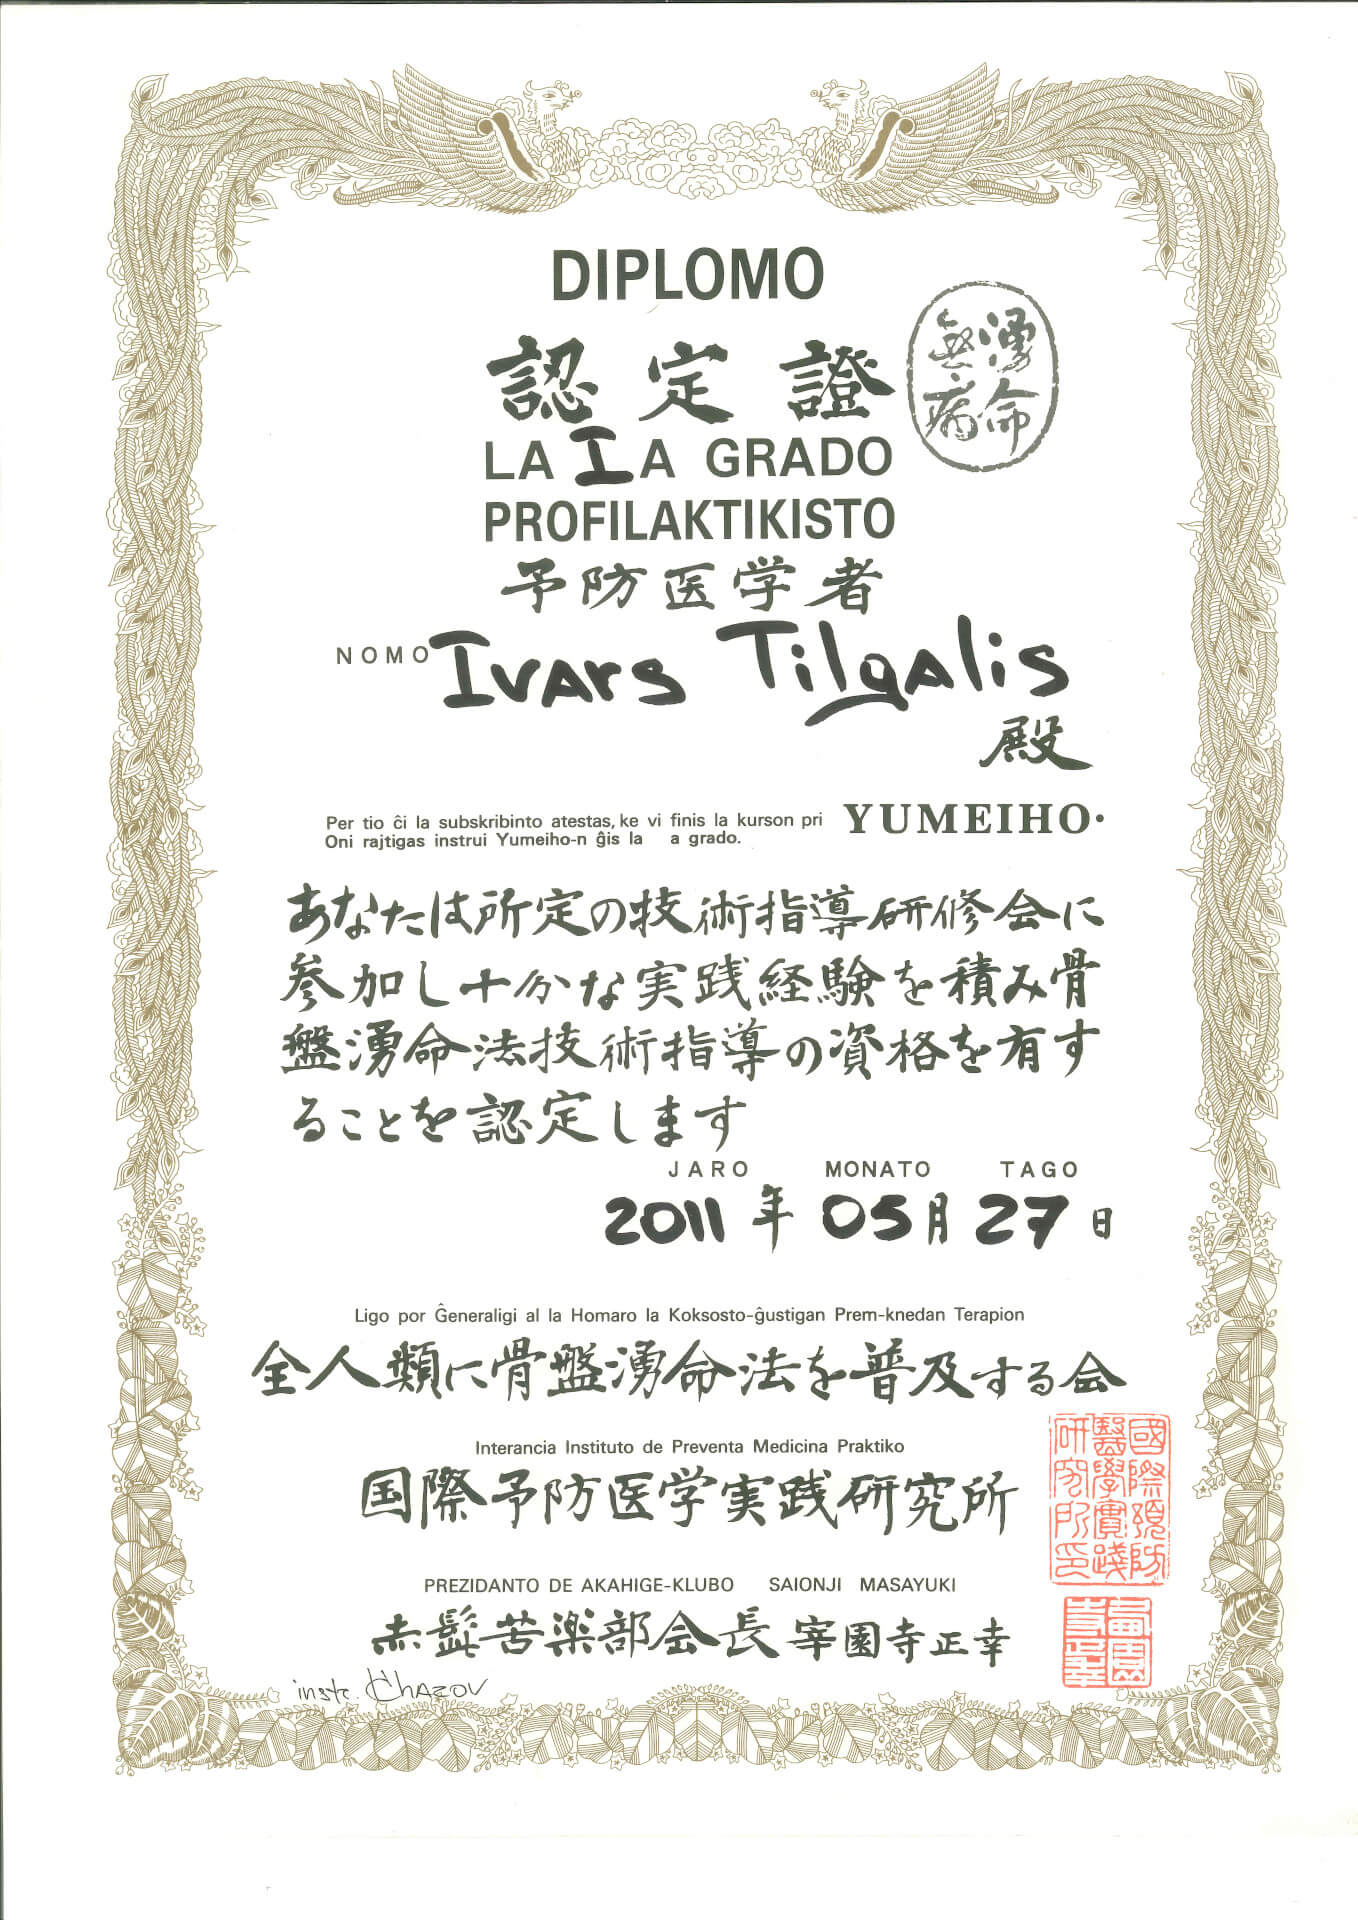 DIPLOMO
認定證
湧命
無病
LA I A GRADO
PROFILAKTIKISTO
予防医学者
NOMO Ivars Tilgalis
殿
Per tio ĉi la subskribinto atestas, ke vi finis la kurson pri YUMEIHO.
Oni rajtigas instrui Yumeiho-n ĝis la a grado.
あなたは所定の技術指導研修会に
参加し十分な実践経験を積み骨
盤湧命法技術指導の資格を有す
ることを認定します
JARO MONATO TAGO
2011年05月27日
Ligo por Ĝeneraligi al la Homaro la Koksosto-ĝustigan Prem-knedan Terapion
全人類に骨盤湧命法を普及する会
Interancia Instituto de Preventa Medicina Praktiko
国際予防医学実践研究所
國際預防
醫學實踐
研究所印
PREZIDANTO DE AKAHIGE-KLUBO SAIONJI MASAYUKI
赤髭苦楽部会長 宰園寺正幸
instr. Chazov